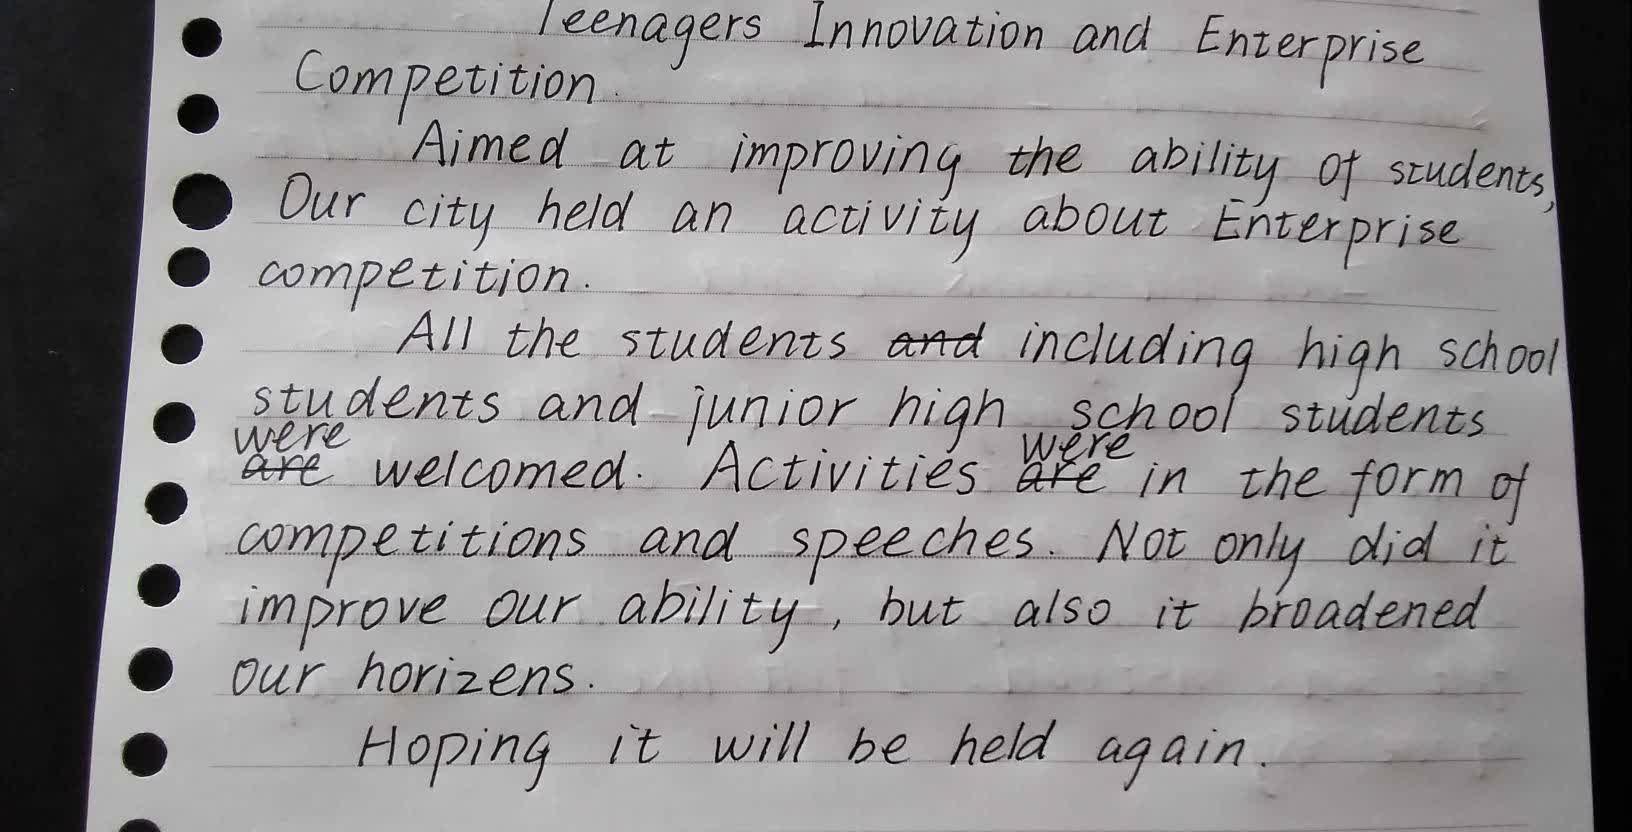 Teenagers Innovation and Enterprise
Competition.
Aimed at improving the ability of students,
Our city held an activity about Enterprise
competition.
All the students and including high school
students and junior high school students
were
are welcomed. Activities were are in the form of
competitions and speeches. Not only did it
improve our ability, but also it broadened
our horizens.
Hoping it will be held again.